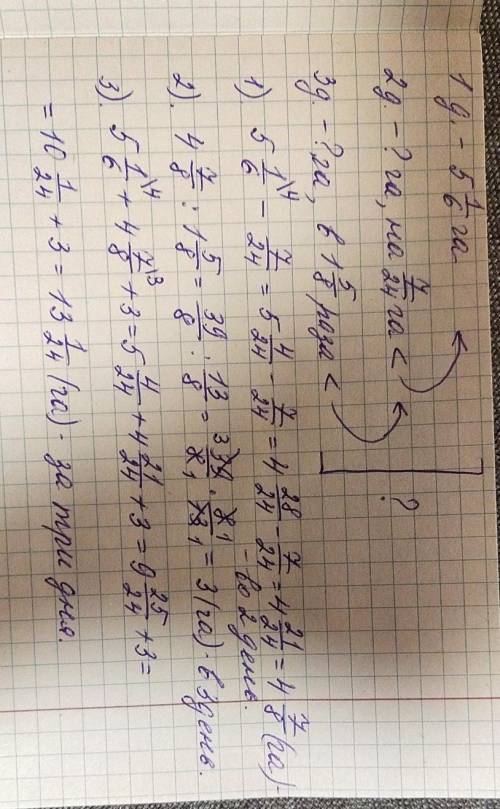 1 д. - 5 1/6 га
2д. - ? га, на 7/24 га <
3д. - ? га, в 1 5/8 раза <
?
1). 5 1/6\4 - 7/24 = 5 4/24 - 7/24 = 4 28/24 - 7/24 = 4 21/24 = 4 7/8 (га) -
- во 2 день.
2). 4 7/8 : 1 5/8 = 39/8 : 13/8 = 3 39/8 1 · 8 1/13 1 = 3 (га) - в 3 день.
3). 5 1/6\4 + 4 7/8\3 + 3 = 5 4/24 + 4 21/24 + 3 = 9 25/24 + 3 =
= 10 1/24 + 3 = 13 1/24 (га) - за три дня.